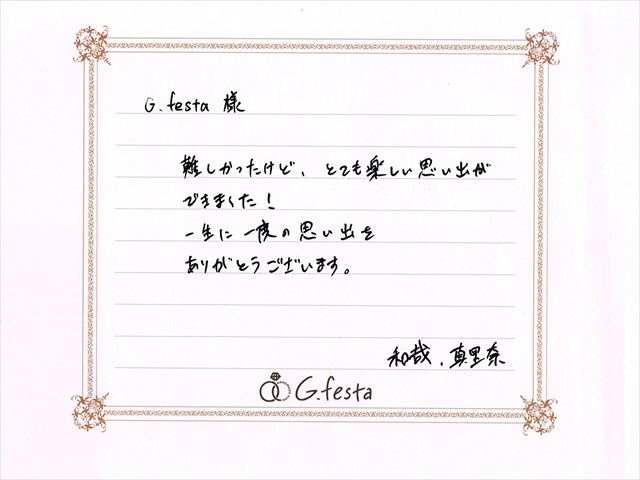 G.festa 様
難しかったけど、とても楽しい思い出が
できました!
一生に一度の思い出を
ありがとうございます。
和哉、真里奈
G.festa